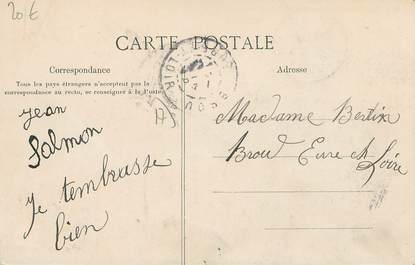 20 €
CARTE POSTALE
Correspondance
Tous les pays étrangers n'acceptent pas la
correspondance au recto, se renseigner à la Poste
Adresse
Jean
Salmon
Je tembrasse
bien
A
Madame Bertin
Brou Eure et
Loire